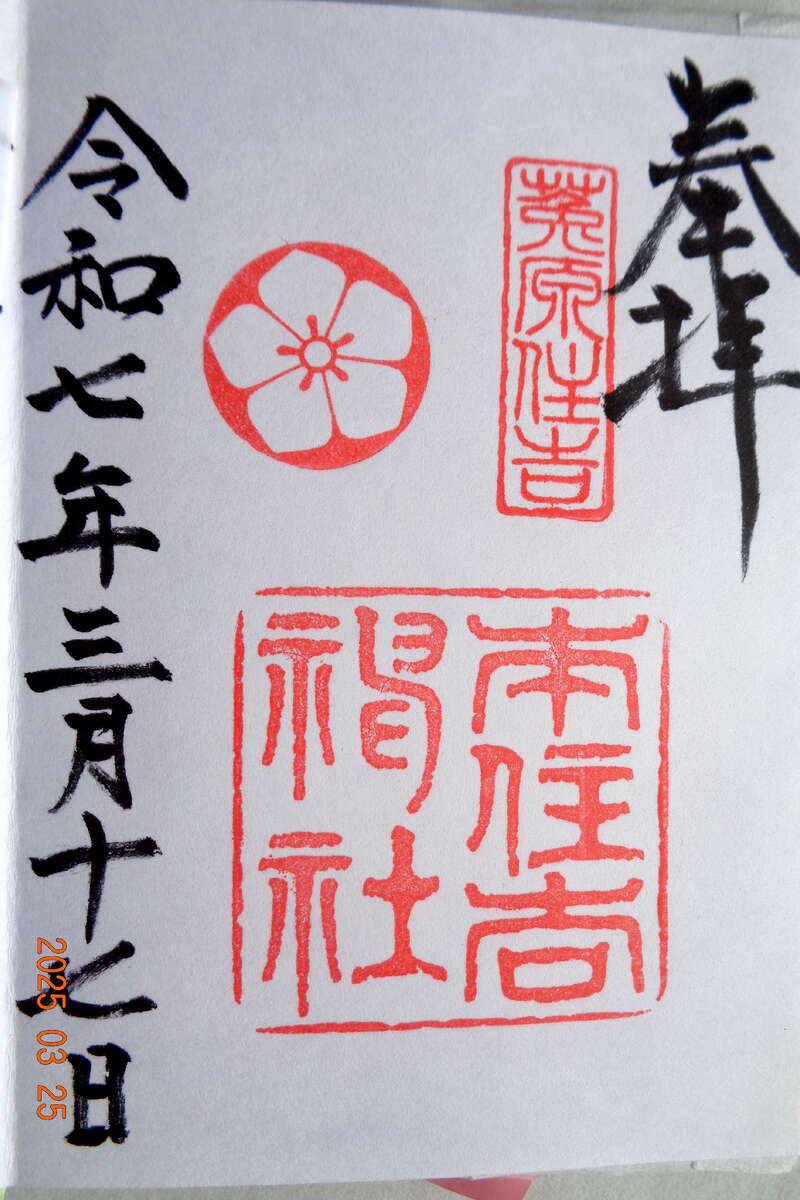 奉拝
菟原住吉
本住吉
神社
令和七年三月十七日
2025 03 25